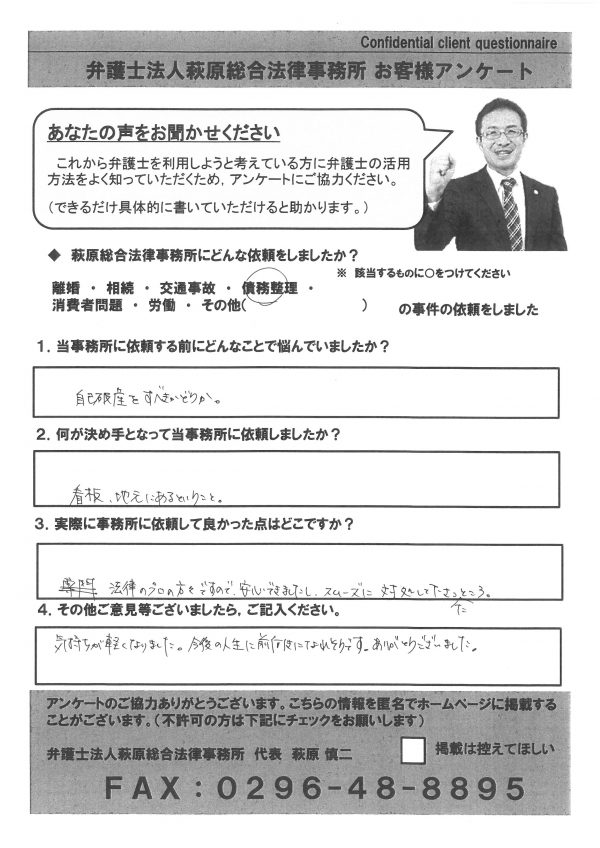 Confidential client questionnaire
弁護士法人萩原総合法律事務所 お客様アンケート
あなたの声をお聞かせください
これから弁護士を利用しようと考えている方に弁護士の活用
方法をよく知っていただくため，アンケートにご協力ください。
（できるだけ具体的に書いていただけると助かります。）
◆ 萩原総合法律事務所にどんな依頼をしましたか？
※ 該当するものに○をつけてください
離婚 ・ 相続 ・ 交通事故 ・ 債務整理 ・
消費者問題 ・ 労働 ・ その他（ ） の事件の依頼をしました
１．当事務所に依頼する前にどんなことで悩んでいましたか？
自己破産をすべきかどうか。
２．何が決め手となって当事務所に依頼しましたか？
看板、地元にあるということ。
３．実際に事務所に依頼して良かった点はどこですか？
専門 法律のプロの方々ですので、安心できましたし、スムーズに対処して下さったところ。
４．その他ご意見等ございましたら，ご記入ください。
気持ちが軽くなりました。今後の人生に前向きになれそうです。ありがとうございました。
アンケートのご協力ありがとうございます。こちらの情報を匿名でホームページに掲載する
ことがございます。（不許可の方は下記にチェックをお願いします）
弁護士法人萩原総合法律事務所 代表 萩原 慎二
掲載は控えてほしい
ＦＡＸ：０２９６－４８－８８９５